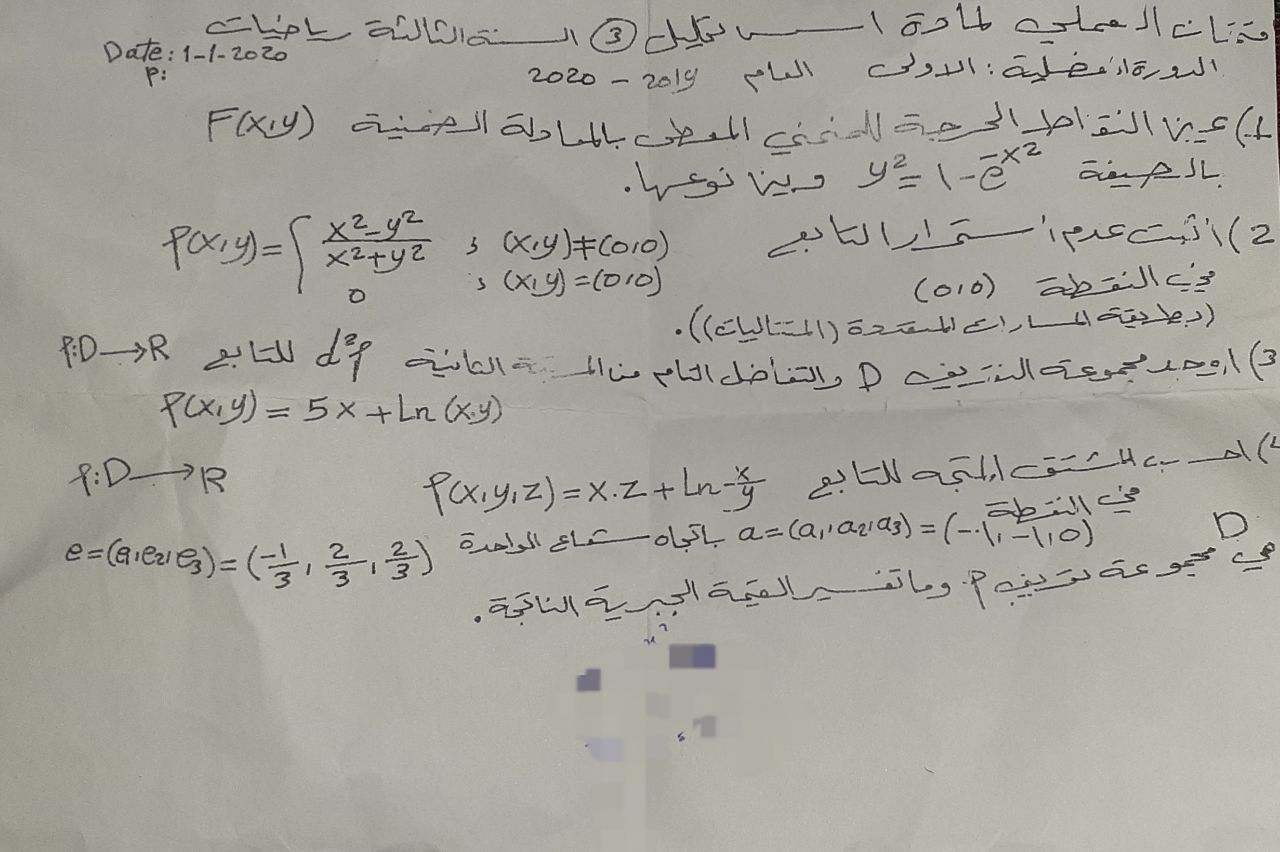 العملي لمادة تحليل ③ السنة الثالثة رياضيات
Date: 1-1-2020
P:
الدورة الفصلية: الاولى العام 2019 - 2020
1) عين النقاط الحرجة للمنحني المعطى بالمعادلة الضمنية F(x,y)
بالصيغة y² = 1 - e^-x² وبين نوعها.
2) اثبت عدم استمرار التابع f(x,y) = { x²-y² / x²+y² ; (x,y)≠(0,0)
0 ; (x,y)=(0,0)
في النقطة (0,0)
(بطريقة المسارات (المتتاليات)).
3) اوجد مجموعة التعريف D والتفاضل التام من المرتبة الثانية d²f للتابع f:D→R
f(x,y) = 5x + Ln(x.y)
4) احسب المشتق المتجه للتابع f(x,y,z) = x.z + Ln x/y f:D→R
في النقطة
a=(a1,a2,a3) = (-1,-1,0) باتجاه شعاع الواحدة e=(e1,e2,e3)=(-1/3, 2/3, 2/3) D
هي مجموعة تعريف f وما تفسير القيمة الجبرية الناتجة.